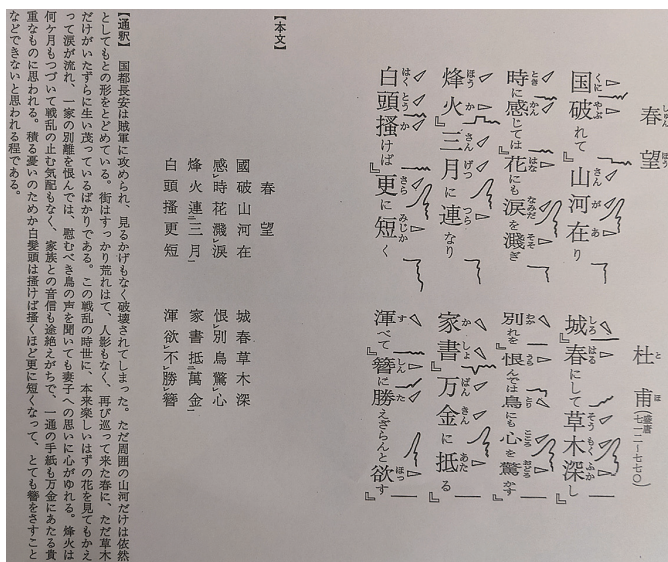 しゅんぼう　とほ
春望　杜甫（盛唐 七一二―七七〇）
くにやぶ　さんがあ　しろはる　そうもくふか
国破れて』山河在り　城』春にして草木深し』
ときかん　はな　なみだそそ　わか　うら　とり　こころおどろ
時に感じては』花にも涙を濺ぎ　別れを』恨んでは鳥にも心を驚かす』
ほうか　さんげつ　つら　かしょ　ばんきん　あた
烽火』三月に連なり　家書』万金に抵る』
はくとうか　さら　みじか　す　しん　た　ほっ
白頭掻けば』更に短く　渾べて』簪に勝えざらんと欲す』
【本文】
春望
國破山河在　城春草木深
感レ時花濺レ涙　恨レ別鳥驚レ心
烽火連二三月一　家書抵二萬金一
白頭搔更短　渾欲レ不レ勝レ簪
【通釈】　国都長安は賊軍に攻められ、見るかげもなく破壊されてしまった。ただ周囲の山河だけは依然
としてもとの形をとどめている。街はすっかり荒れはて、人影もなく、再び巡って来た春に、ただ草木
だけがいたずらに生い茂っているばかりである。この戦乱の時世に、本来楽しいはずの花を見てもかえ
って涙が流れ、一家の別離を恨んでは、慰むべき鳥の声を聞いても妻子への思いに心がゆれる。烽火は
何ヶ月もつづいて戦乱の止む気配もなく、家族との音信も途絶えがちで、一通の手紙も万金にあたる貴
重なものに思われる。積る憂いのためか白髪頭は掻けば掻くほど更に短くなって、とても簪をさすこと
などできないと思われる程である。